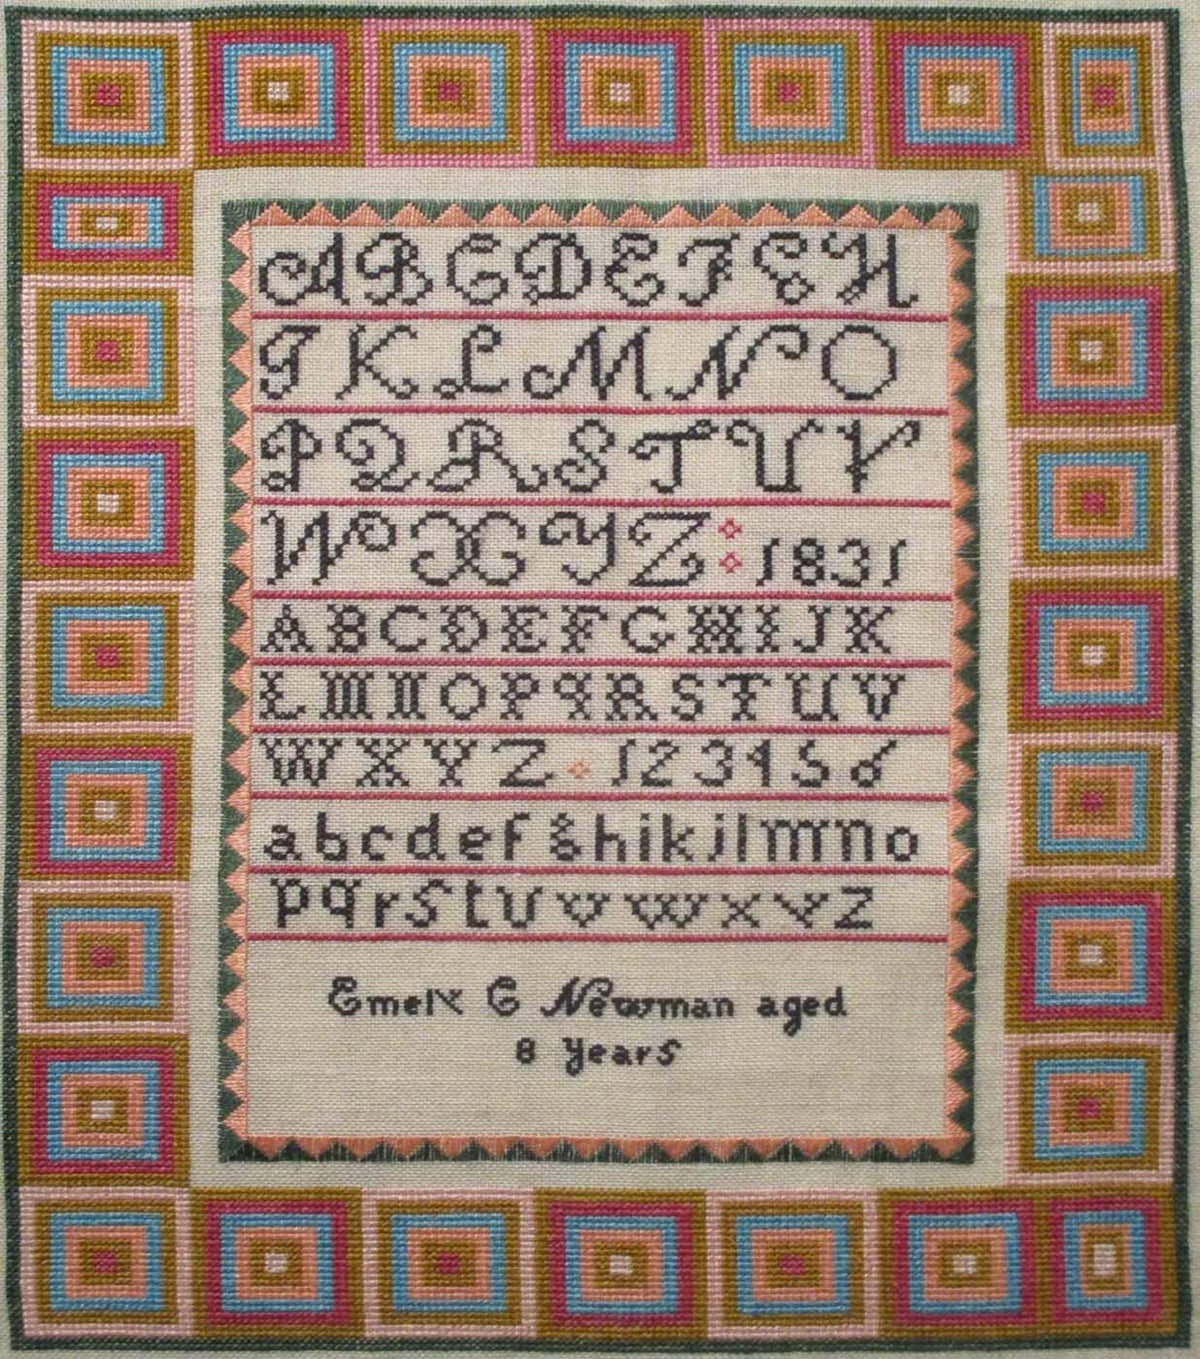 A B C D E F G H
I K L M N O
P Q R S T U V
W X Y Z : 1831
A B C D E F G H I J K
L M N O P q R S T U V
W X Y Z 1 2 3 4 5 6
a b c d e f g h i k j l m n o
p q r s t u v w x y z
Emely C Newman aged
8 years